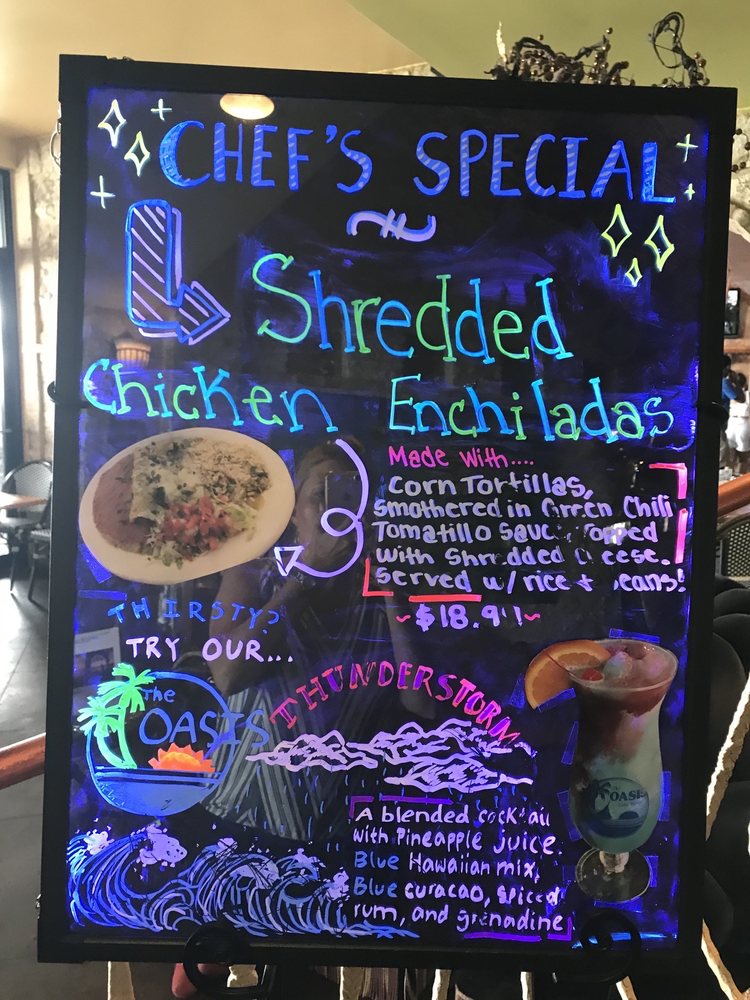 CHEF'S SPECIAL
Shredded
Chicken Enchiladas
Made With....
Corn Tortillas,
smothered in Green Chili
Tomatillo Sauce Topped
with Shredded Cheese.
served w/ rice + beans!
THIRSTY?
TRY OUR...
The
OASIS
THUNDERSTORM
A blended cocktail
with Pineapple juice.
Blue Hawaiian mix,
Blue curacao, spiced
rum, and grenadine
OASIS